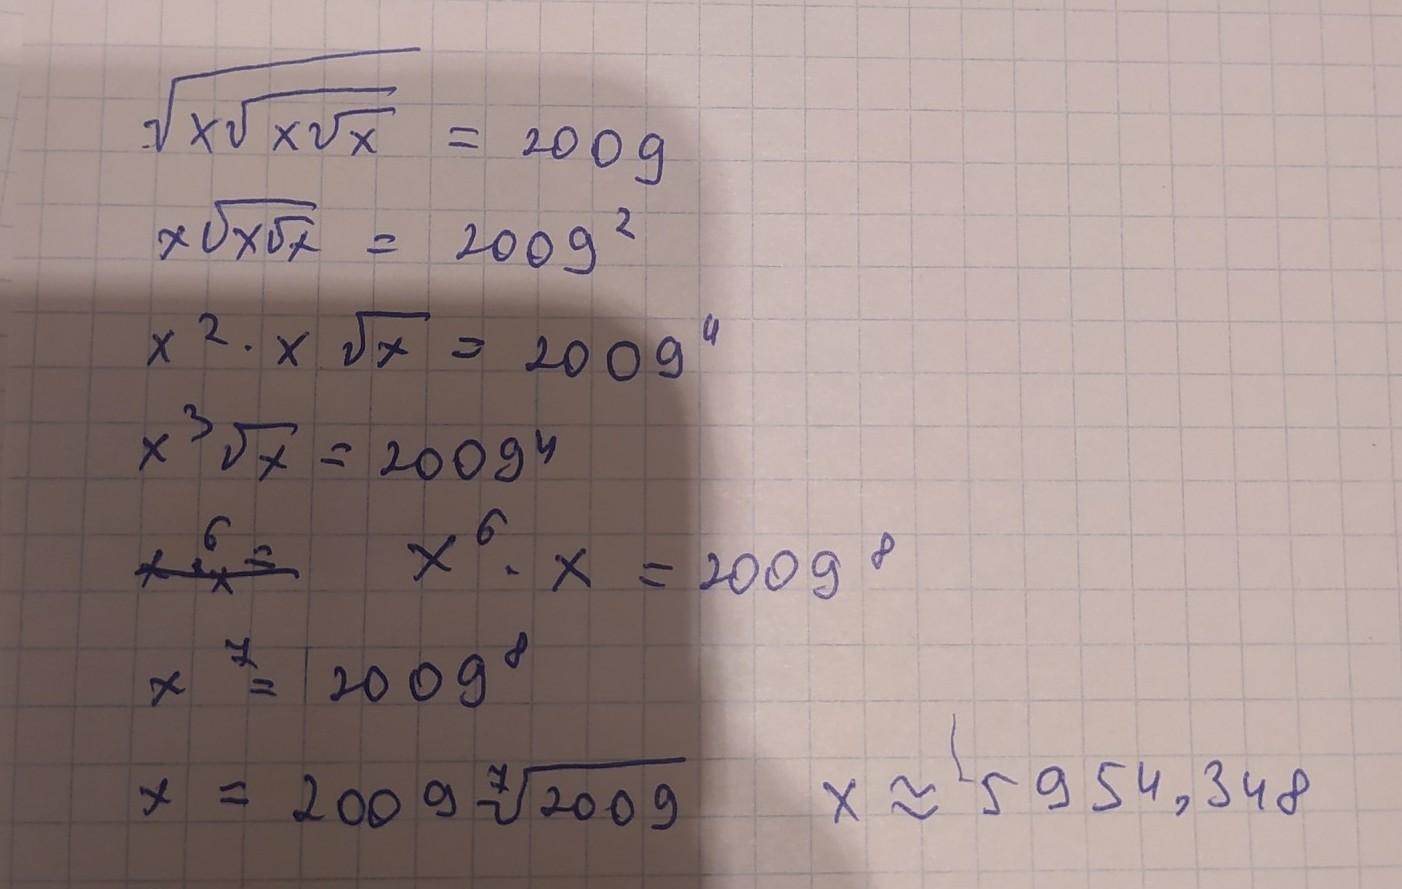 √(x√(x√x)) = 2009
x√(x√x) = 2009²
x² · x √x = 2009⁴
x³√x = 2009⁴
x⁶ · x = 2009⁸
x⁷ = 2009⁸
x = 2009 ⁷√2009 x ≈ 5954,348